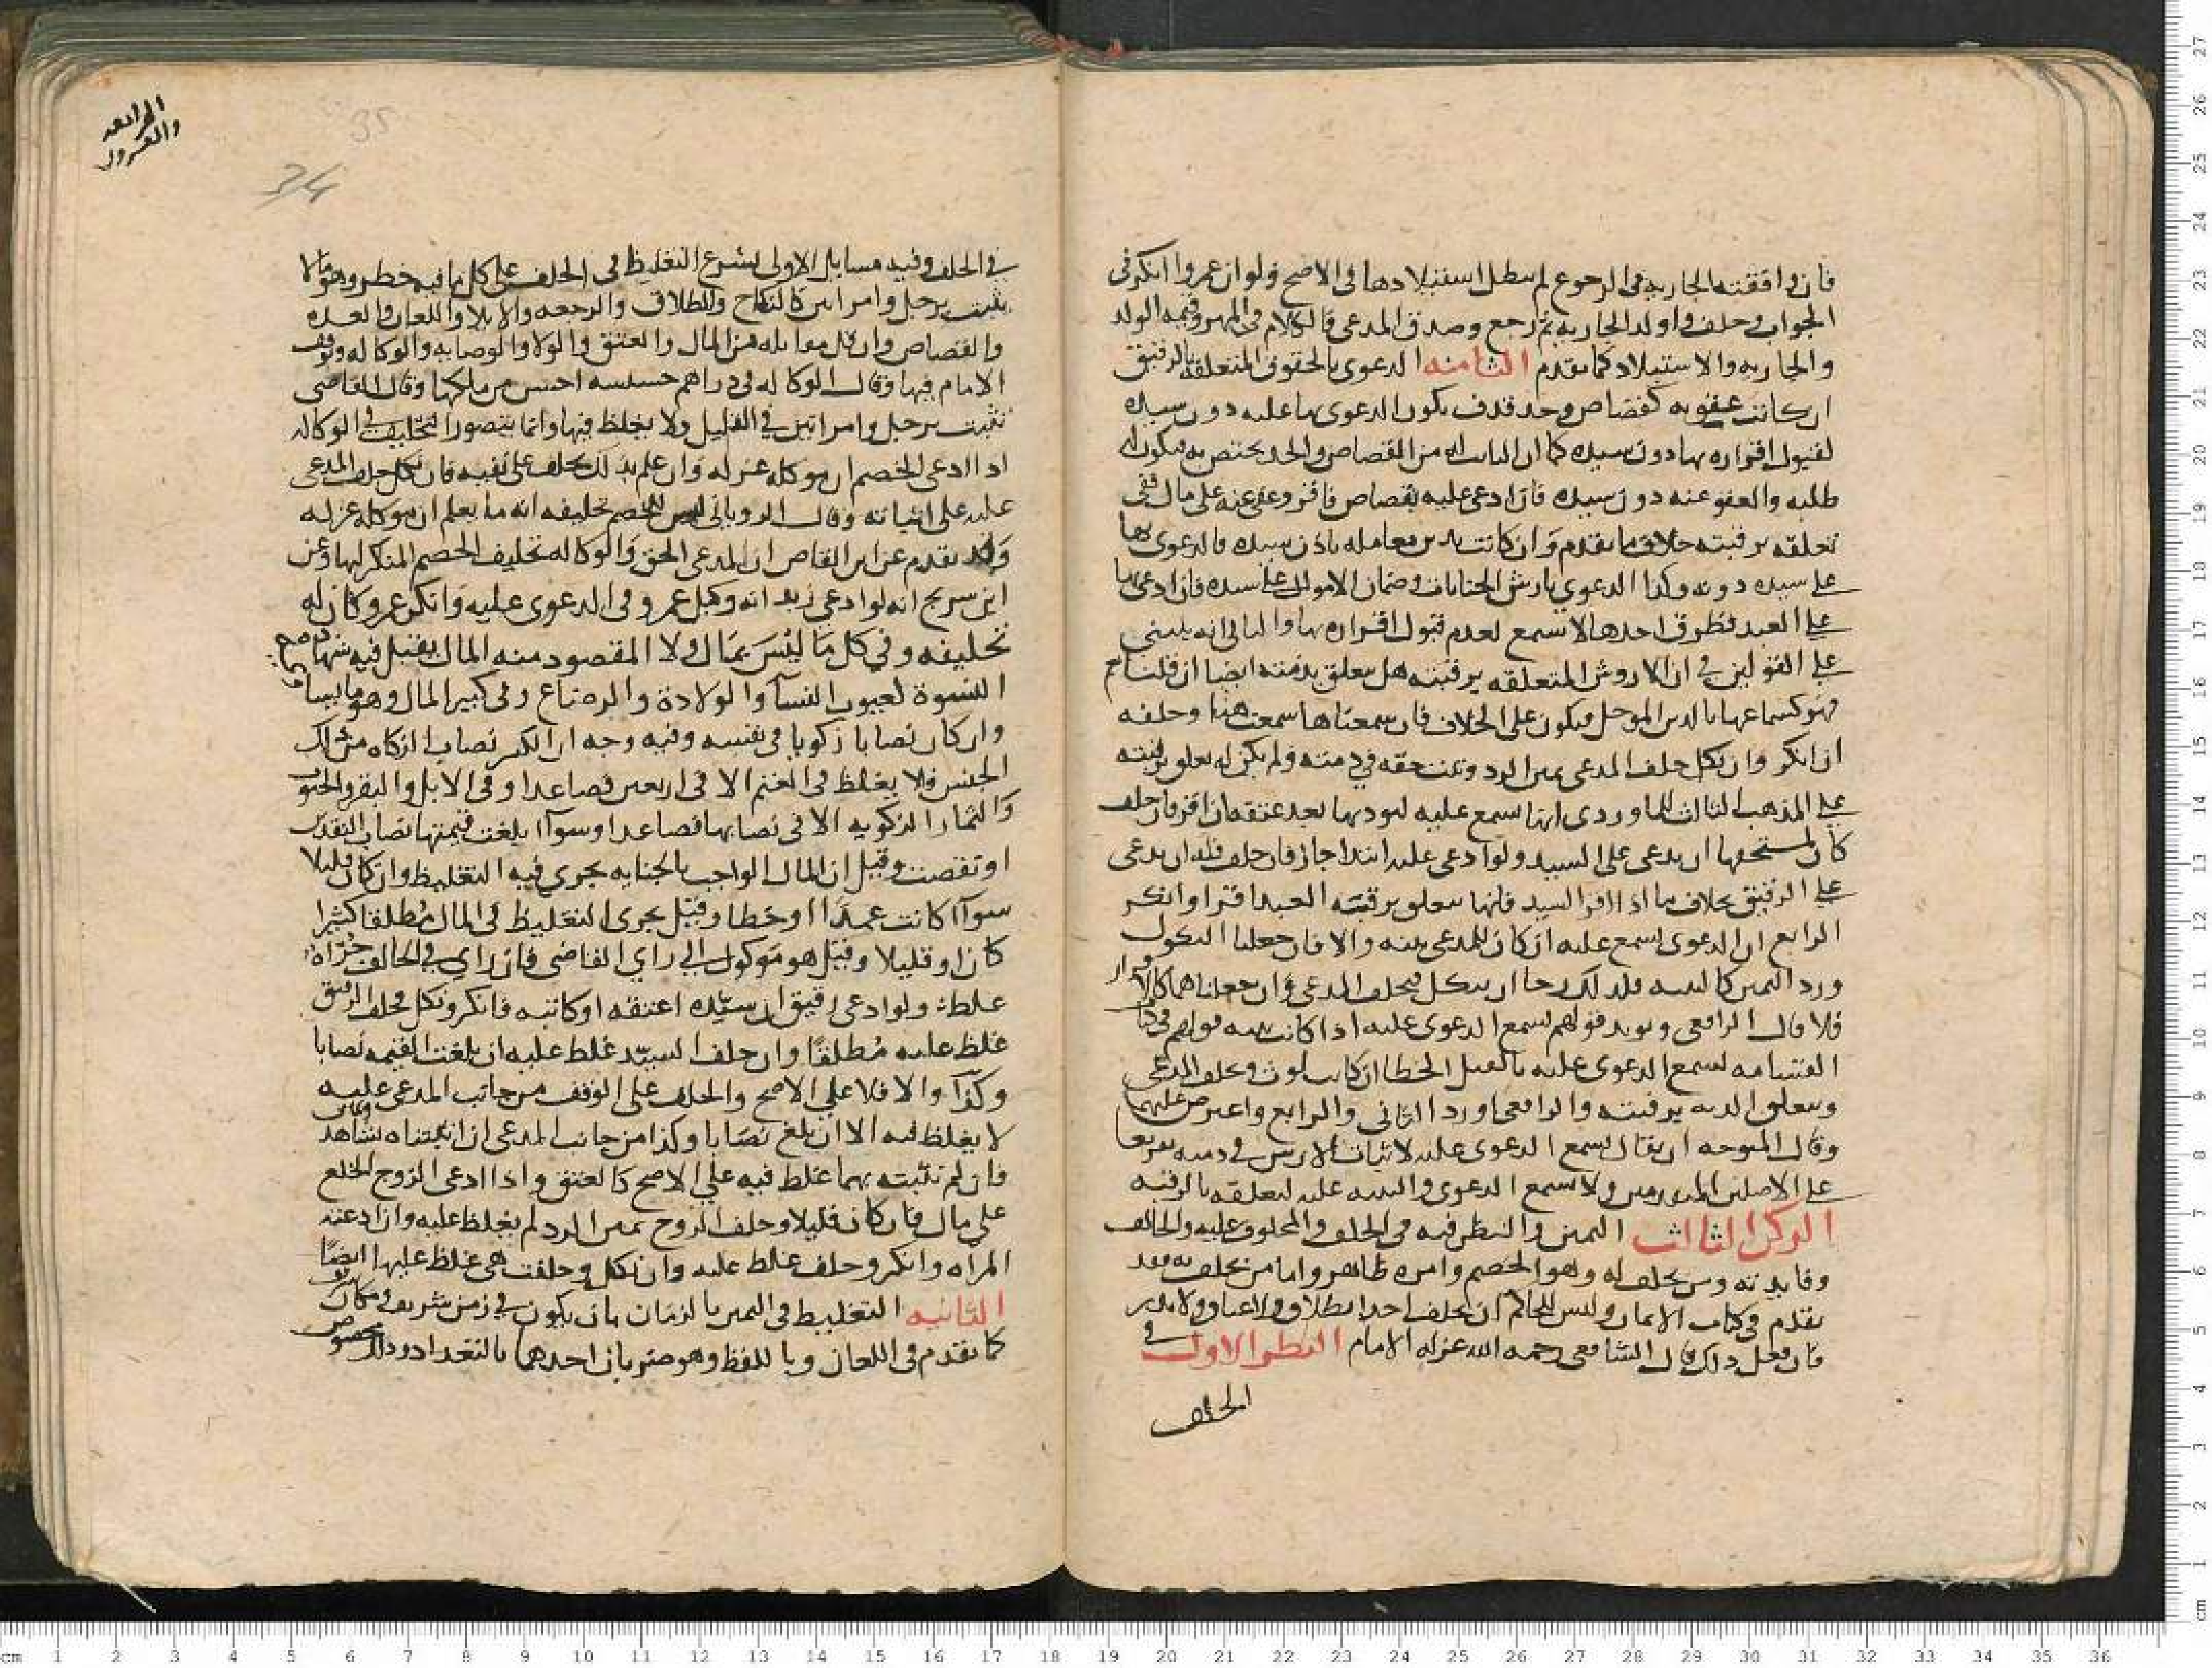 فان وافقته الجاريه في الرجوع لم يبطل استيلادها في الاصح ولو ان عمروا انكر في
الجواب وحلف واولد الجاريه ثم رجع وصدق المدعي فالكلام في المهر وقيمه الولد
والجاريه والاستيلاد كما تقدم الثامنه الدعوى بالحقوق المتعلقه بالرقيق
ان كانت عقوبه كقصاص وحد قذف يكون الدعوى بها عليه دون سيده
لقبول اقراره بها دون سيده كما ان الثابت له من القصاص والحد يختص به فيكون له
طلبه والعفو عنه دون سيده فان ادعى عليه بقصاص فاقر وعفي عنه على مال ففي
تعلقه برقبته خلاف ما تقدم وان كانت بدين معامله باذن سيده فالدعوى بها
على سيده دونه وكذا الدعوى بارش الجنايات وضمان الاموال على سيده فان ادعى بها
على العبد فطرق احدها لا تسمع لعدم قبول اقراره بها والثاني انه يبنى
على القولين في ان الاروش المتعلقه برقبته هل تتعلق بذمته ايضا ان قلنا نعم
فهو كسماعها بالدين الموجل فيكون على الخلاف فان سمعناها سمعت هنا وحلفه
ان انكر وان نكل حلف المدعي يمين الرد وثبت حقه في ذمته ولم يكن له تعلق برقبته
على المذهب الثالث للماوردي انها تسمع عليه ليوديها بعد عتقه ان اقر فان حلف
كان لمستحقها ان يدعي على السيد ولو ادعى عليه ابتدا جاز فان حلف فله ان يدعي
على الرقيق بخلاف ما اذا اقر السيد فانها تتعلق برقبته العبد اقر او انكر
الرابع ان الدعوى تسمع عليه ان كان للمدعي بينه والا فان جعلنا النكول
ورد اليمين كالبينه فلذلك رجا ان ينكل فيحلف المدعي وان جعلناهما كالاقرار
فلا قال الرافعي ويويد قولهم تسمع الدعوى عليه اذا كانت بينه قولهم في باب
القسامه تسمع الدعوى عليه بالقتل الخطا ان كان لوث ويحلف المدعي
وتتعلق الديه برقبته والرافعي اورد الثاني والرابع واعترض عليهما
وقال المتوجه ان يقال تسمع الدعوى عليه لاثبات الارش في ذمته تفريعا
على الاصلين المذكورين ولا تسمع الدعوى والبينه عليه لتعلقه بالرقبه
الركن الثالث اليمين والنظر فيه في الحلف والمحلوف عليه والحالف
وفايدته ومن يحلف له وهو الخصم وامره ظاهر واما من يحلف به فقد
تقدم في كتاب الايمان وليس للحاكم ان يحلف احدا بطلاق ولا عتاق ولا نذر
فان فعل ذلك قال الشافعي رحمه الله عزله الامام النظر الاول في
الحلف
الرابعه
والعشرون
34
35
في الحلف وفيه مسايل الاولى يشرع التغليظ في الحلف على كل ما فيه خطر وهو ما لا
يثبت برجل وامراتين كالنكاح والطلاق والرجعه والايلا واللعان والعده
والقصاص وان قل مقابله من المال والعتق والولا والوصايه والوكاله وتوقف
الامام فيها وقال الوكاله في دراهم خسيسه احسن من ملكها وقال القاضي
تثبت برجل وامراتين في القليل ولا يغلظ فيها وانما يتصور التحليف في الوكاله
اذا ادعى الخصم ان موكله عزله وان علم بذلك يحلف على نفيه فان نكل حلف المدعى
عليه على اثباته وقال الروياني ليس للخصم تحليفه انه ما يعلم ان موكله عزله
وقد تقدم عن ابن القاص ان للمدعي الحق والوكاله تحليف الخصم المنكر لها وعن
ابن سريج انه لو ادعى زيد انه وكيل عمرو في الدعوى عليه وانكر عمرو كان له
تحليفه وفي كل ما ليس بمال ولا المقصود منه المال يقبل فيه شهادة محض
النسوة لعيوب النسآ والولادة والرضاع وفي كبير المال وهو ما يساوي
وان كان نصابا زكويا في نفسه وفيه وجه ان الكثير نصاب الزكاه من ذلك
الجنس فلا يغلظ في الغنم الا في اربعين فصاعدا وفي الابل والبقر والحبوب
والثمار الزكويه الا في نصابها فصاعدا وسوآ ابلغت قيمتها نصاب النقدين
او نقصت وقيل ان المال الواجب بالجنايه يجرى فيه التغليظ وان كان قليلا
سوآ كانت عمدًا او خطا وقيل يجرى التغليظ في المال مطلقا كثيرا
كان او قليلا وقيل هو موكول الى راي القاضي فان راي في الحالف جرآة
غلظ ولو ادعى رقيق ان سيّده اعتقه او كاتبه فانكر ونكل فحلف الرقيق
غلظ عليه مطلقًا وان حلف السيّد غلظ عليه ان بلغت القيمه نصابا
وكذا والا فلا على الاصح والحلف على الوقف من جانب المدعى عليه
لا يغلظ فيه الا ان بلغ نصابا وكذا من جانب المدعي ان اثبتناه بشاهد ويمين
فان لم نثبته بهما غلظ فيه على الاصح كالعتق واذا ادعى الزوج الخلع
على مال فان كان قليلا وحلف الزوج يمين الرد لم يغلظ عليه وان ادعته
المراه وانكر وحلف غلظ عليه وان نكل وحلفت هي غلظ عليها ايضًا
الثانيه التغليظ في اليمين بالزمان بان يكون في زمن شريف ومكان شريف
كما تقدم في اللعان وباللفظ وهو ضربان احدهما بالتعداد وذلك مخصوص